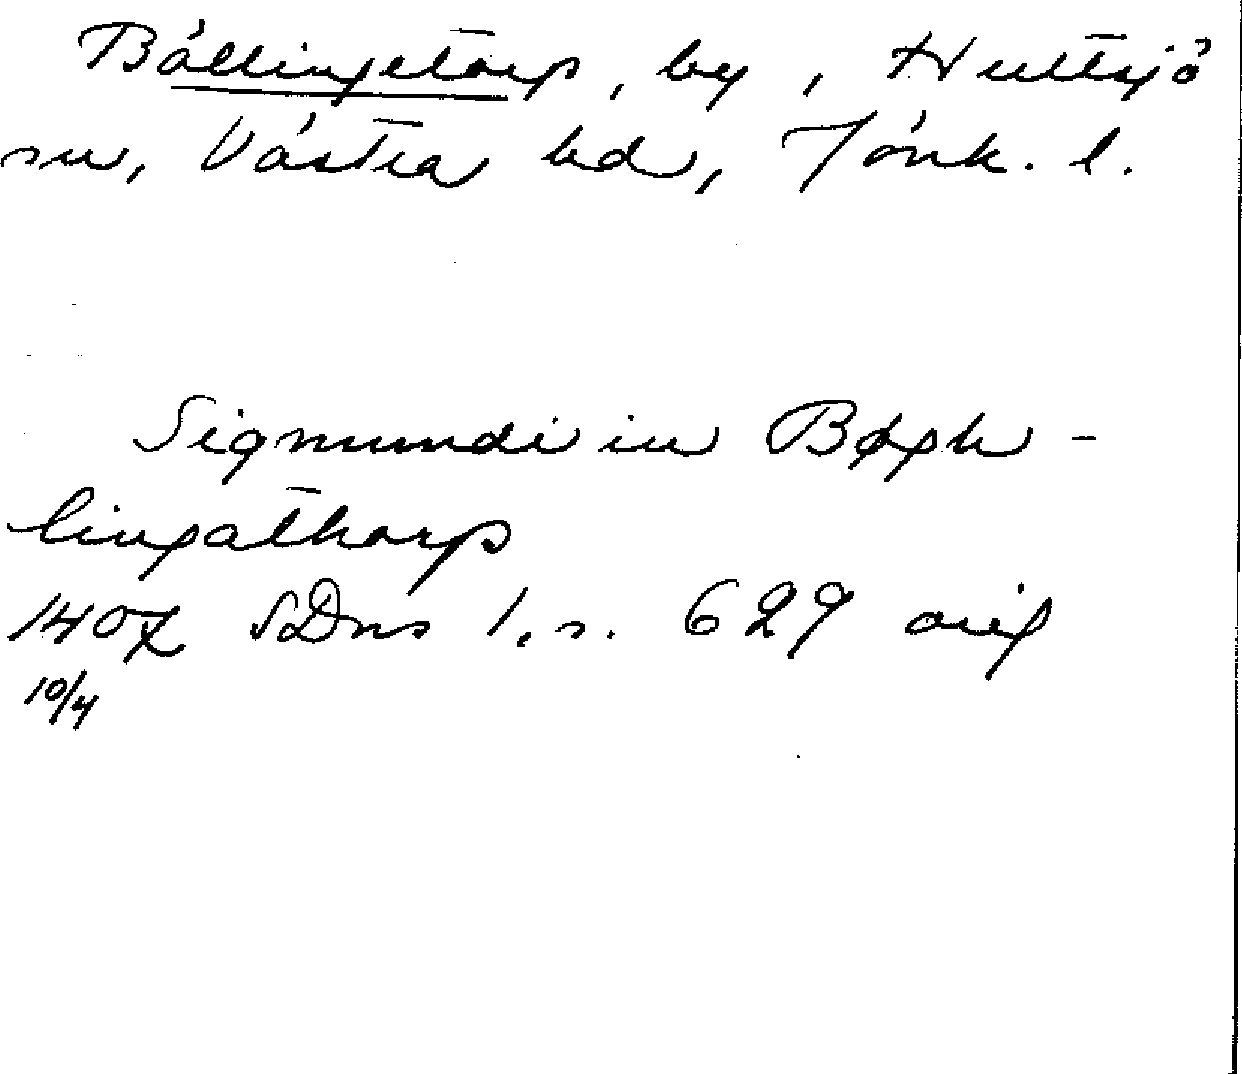 Bällingetorp, by, Hultsjö
sn, Västra hd, Jönk. l.
Sigmundi in Bøgh-
lingathorp
1407 SDns 1, s. 629 orig
10/4